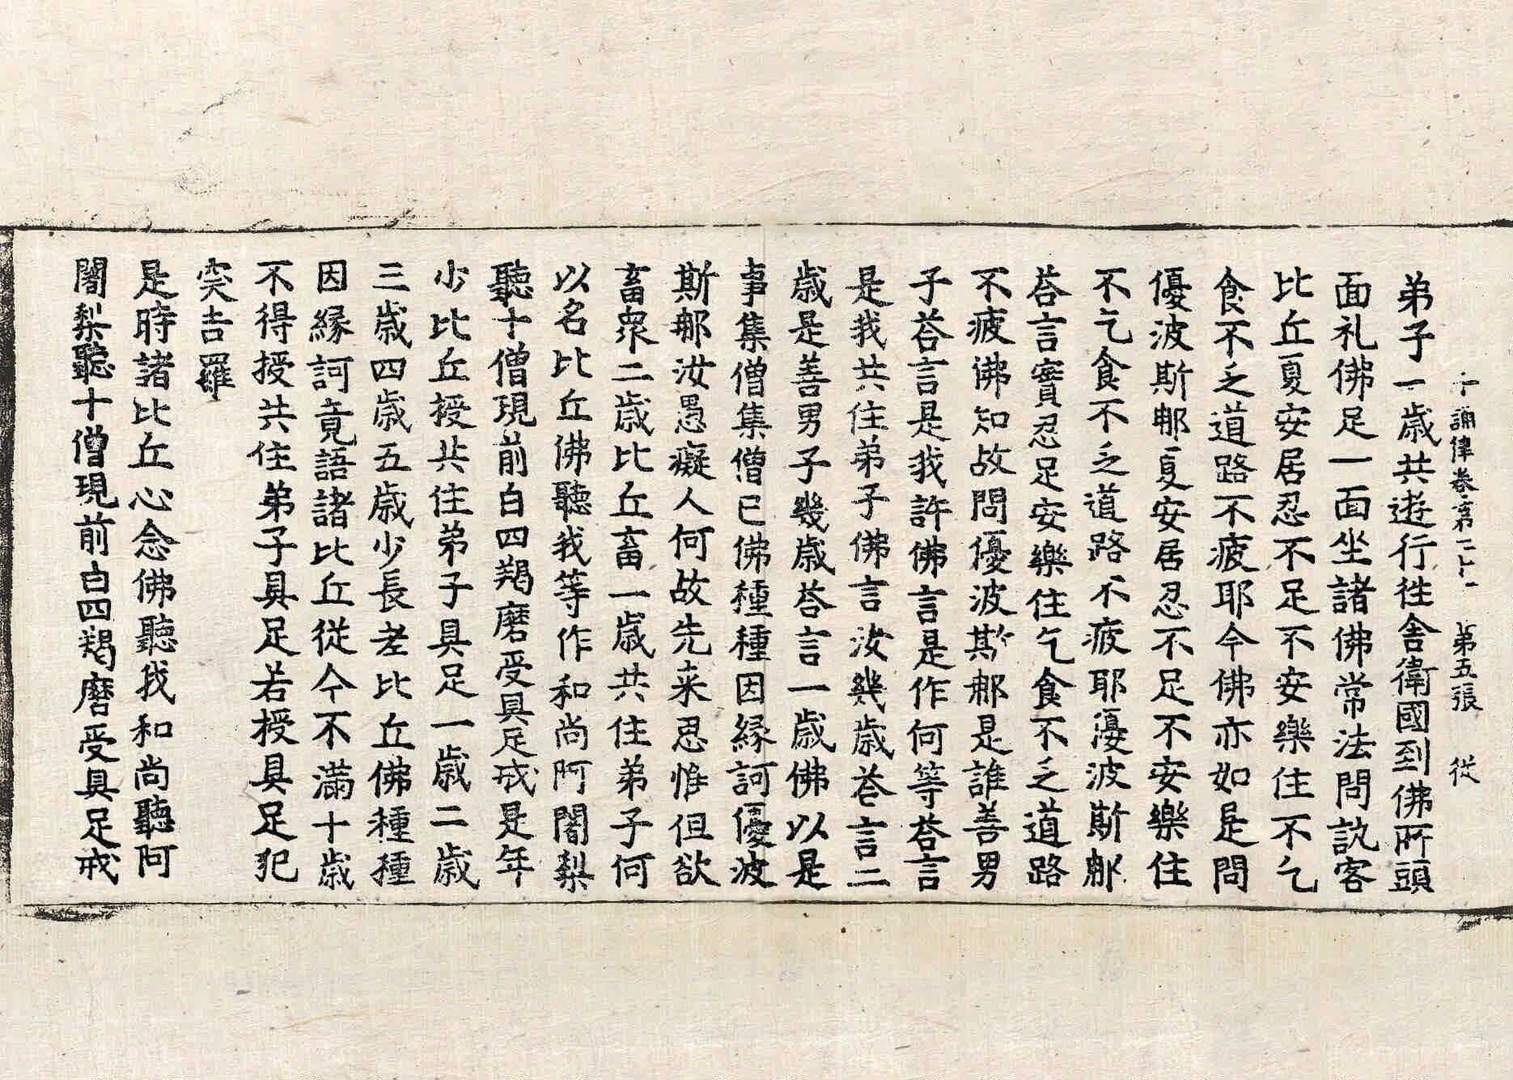 十誦律卷第二十一 第五張 從
弟子一歲共遊行徃舍衛國到佛所頭
面礼佛足一面坐諸佛常法問訊客
比丘夏安居忍不足不安樂住不乞
食不乏道路不疲耶今佛亦如是問
優波斯那夏安居忍不足不安樂住
不乞食不乏道路不疲耶優波斯那
荅言實忍足安樂住乞食不乏道路
不疲佛知故問優波斯那是誰善男
子荅言是我許佛言是作何等荅言
是我共住弟子佛言汝幾歲荅言二
歲是善男子幾歲荅言一歲佛以是
事集僧集僧已佛種種因緣訶優波
斯那汝愚癡人何故先来思惟但欲
畜衆二歲比丘畜一歲共住弟子何
以名比丘佛聽我等作和尚阿闍梨
聽十僧現前白四羯磨受具足戒是年
少比丘授共住弟子具足一歲二歲
三歲四歲五歲少長老比丘佛種種
因緣訶竟語諸比丘從今不滿十歲
不得授共住弟子具足若授具足犯
突吉羅
是時諸比丘心念佛聽我和尚聽阿
闍梨聽十僧現前白四羯磨受具足戒